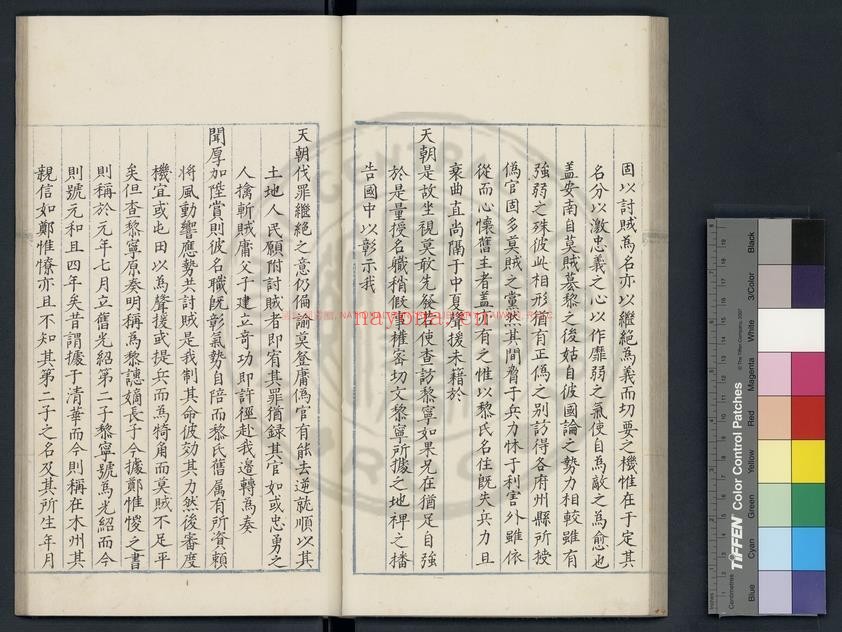 固以討賊為名亦以繼絕為義而切要之機惟在于定其
名分以激忠義之心以作靡弱之氣使自為敵之為愈也
蓋安南自莫賊墓黎之後姑自彼國論之勢力相較雖有
強弱之殊彼此相形猶有正偽之別訪得各府州縣所授
偽官固多莫賊之黨然其間脅于兵力怵于利害外雖依
從而心懷舊主者盖亦有之惟以黎氏名位既失兵力且
衰曲直尚隔于中夏聲援未藉於
天朝是故坐視莫敢先發若使查訪黎寧如果兄在猶足自強
於是量授名職稍假權審切文黎寧所據之地裨之播
告國中以彰示我
天朝伐罪繼絕之意仍備諭莫登庸偽官有能去逆就順以其
土地人民願附討賊者即宥其罪猶録其官如或忠勇之
人擒斬賊庸父子建立奇功即許徑赴我邊轉為奏
聞厚加陞賞則彼名職既彰氣勢自陪而黎氏舊属有所資賴
將風動響應勢共討賊是我制其命彼効其力然後審度
機宜或屯田以為聲援或提兵而為犄角而莫賊不足平
矣但查黎寧原奏明稱為黎譓嫡長子今據鄭惟悛之書
則稱於元年七月立舊光紹第二子黎寧號為光紹而今
則號元和且四年矣昔謂據于清華而今則稱在木州其
親信如鄭惟憭亦且不知其第二子之名及其所生年月
nayona.cn
TIFFEN Color Control Patches
© The Tiffen Company, 2007
Centimetres
Inches
Blue
Cyan
Green
Yellow
Red
Magenta
White
3/Color
Black